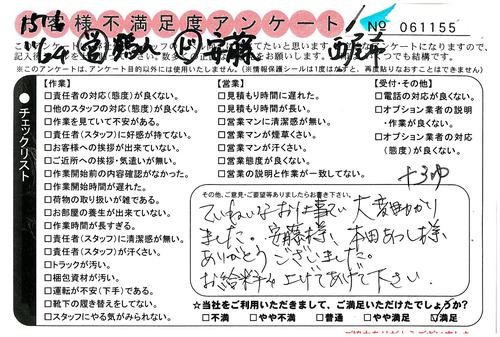 お客様不満足度アンケート
No 061155
チェックリスト
【作業】
□責任者の対応(態度)が良くない。
□他のスタッフの対応(態度)が良くない。
□作業を見ていて不安がある。
□責任者(スタッフ)に好感が持てない。
□お客様への挨拶が出来ていない。
□ご近所への挨拶・気遣いが無い。
□作業開始前の内容確認がなかった。
□作業開始時間が遅れた。
□荷物の取り扱いが雑である。
□お部屋の養生が出来ていない。
□作業時間が長すぎる。
□責任者(スタッフ)に清潔感が無い。
□責任者(スタッフ)が汗くさい。
□トラックが汚い。
□梱包資材が汚い。
□運転が不安(下手)である。
□靴下の履き替えをしてない。
□スタッフにやる気がみられない。
【営業】
□見積もり時間に遅れた。
□見積もり時間が長い。
□営業マンに清潔感が無い。
□営業マンが煙草くさい。
□営業マンが汗くさい。
□営業態度が良くない。
□営業の説明と作業が一致してない。
【受付・その他】
□電話の対応が良くない。
□オプション業者の説明
・作業が良くない。
□オプション業者の対応
(態度)が良くない。
その他、ご意見・ご要望等ありましたらお書き下さい。
ていねいなお仕事で大変助かり
ました。安藤様、本田あつし様
ありがとうございました。
お給料を上げてあげて下さい。
☆当社をご利用いただきまして、ご満足いただけたでしょうか?
□不満 □やや不満 □普通 □やや満足 ☑満足